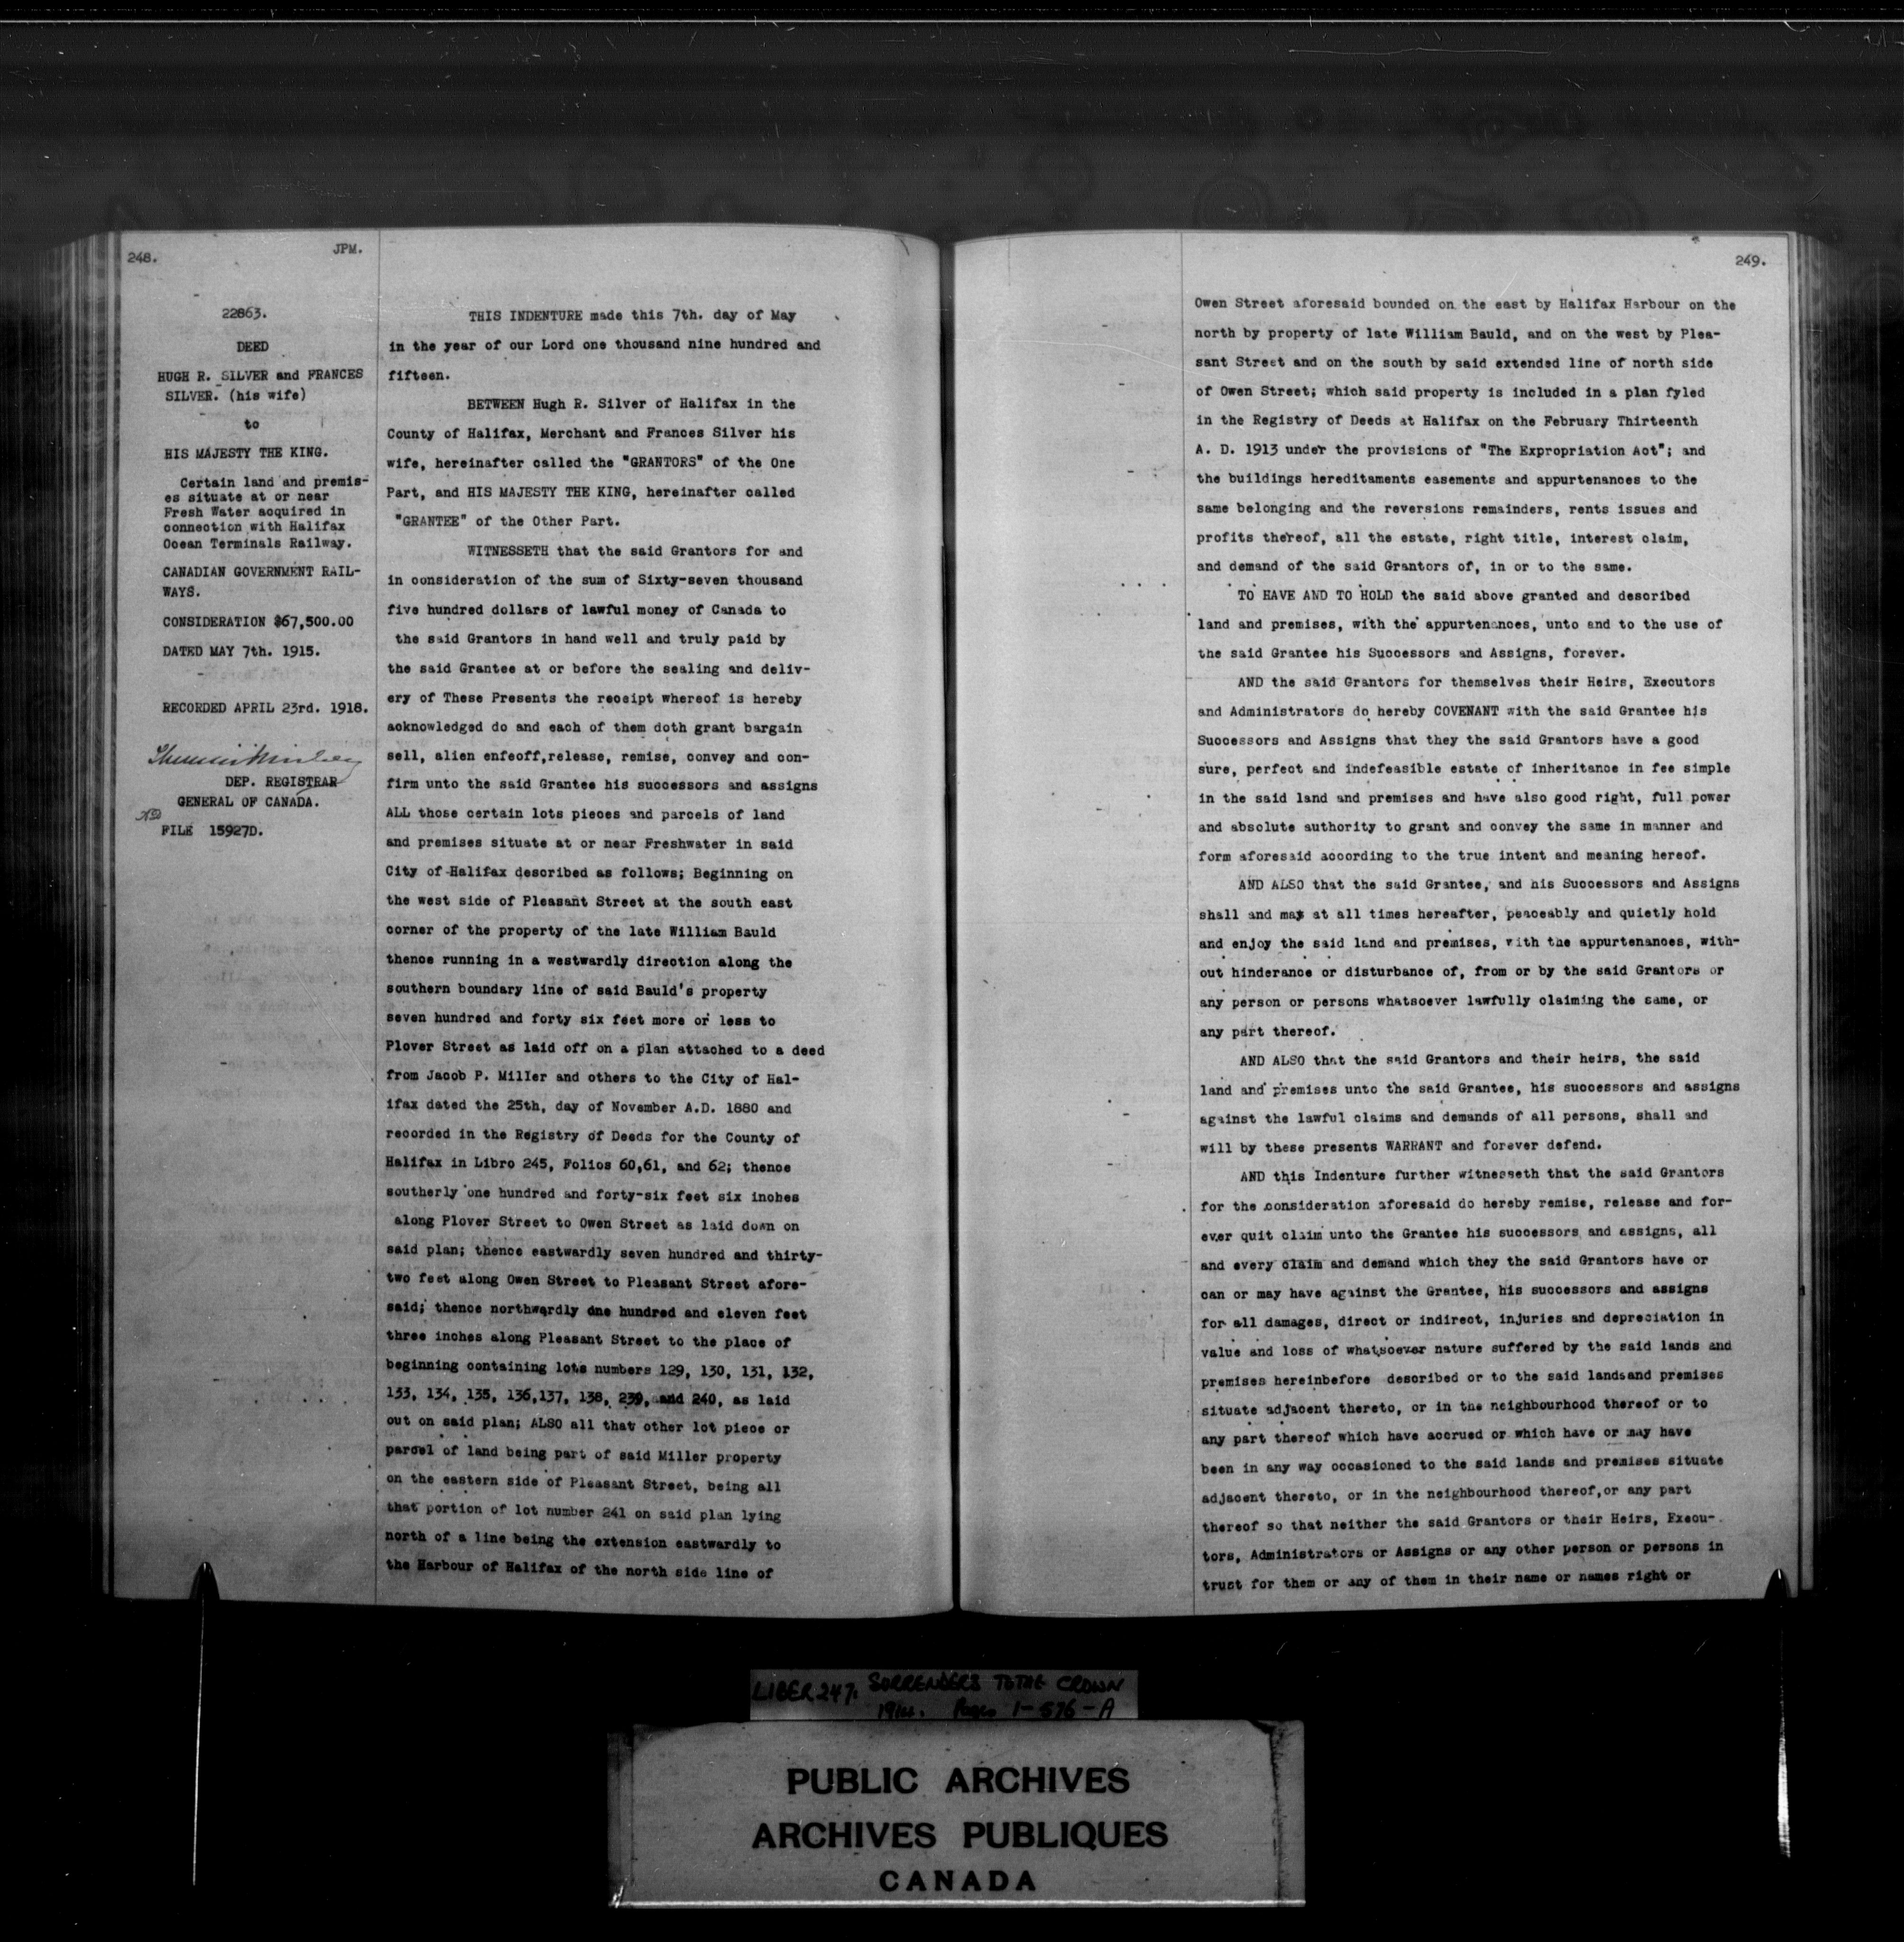 248.
JPM.
22863.
DEED
HUGH R. SILVER and FRANCES
SILVER. (his wife)
to
HIS MAJESTY THE KING.
Certain land and premis-
es situate at or near
Fresh Water acquired in
connection with Halifax
Ocean Terminals Railway.
CANADIAN GOVERNMENT RAIL-
WAYS.
CONSIDERATION $67,500.00
DATED MAY 7th. 1915.
RECORDED APRIL 23rd. 1918.
DEP. REGISTRAR
GENERAL OF CANADA.
FILE 15927D.
THIS INDENTURE made this 7th. day of May
in the year of our Lord one thousand nine hundred and
fifteen.
BETWEEN Hugh R. Silver of Halifax in the
County of Halifax, Merchant and Frances Silver his
wife, hereinafter called the "GRANTORS" of the One
Part, and HIS MAJESTY THE KING, hereinafter called
"GRANTEE" of the Other Part.
WITNESSETH that the said Grantors for and
in consideration of the sum of Sixty-seven thousand
five hundred dollars of lawful money of Canada to
the said Grantors in hand well and truly paid by
the said Grantee at or before the sealing and deliv-
ery of These Presents the receipt whereof is hereby
acknowledged do and each of them doth grant bargain
sell, alien enfeoff,release, remise, convey and con-
firm unto the said Grantee his successors and assigns
ALL those certain lots pieces and parcels of land
and premises situate at or near Freshwater in said
City of Halifax described as follows; Beginning on
the west side of Pleasant Street at the south east
corner of the property of the late William Bauld
thence running in a westwardly direction along the
southern boundary line of said Bauld's property
seven hundred and forty six feet more or less to
Plover Street as laid off on a plan attached to a deed
from Jacob P. Miller and others to the City of Hal-
ifax dated the 25th, day of November A.D. 1880 and
recorded in the Registry of Deeds for the County of
Halifax in Libro 245, Folios 60,61, and 62; thence
southerly one hundred and forty-six feet six inches
along Plover Street to Owen Street as laid down on
said plan; thence eastwardly seven hundred and thirty-
two feet along Owen Street to Pleasant Street afore-
said; thence northwardly one hundred and eleven feet
three inches along Pleasant Street to the place of
beginning containing lots numbers 129, 130, 131, 132,
133, 134, 135, 136,137, 138, 239, and 240, as laid
out on said plan; ALSO all that other lot piece or
parcel of land being part of said Miller property
on the eastern side of Pleasant Street, being all
that portion of lot number 241 on said plan lying
north of a line being the extension eastwardly to
the Harbour of Halifax of the north side line of
249.
Owen Street aforesaid bounded on the east by Halifax Harbour on the
north by property of late William Bauld, and on the west by Plea-
sant Street and on the south by said extended line of north side
of Owen Street; which said property is included in a plan fyled
in the Registry of Deeds at Halifax on the February Thirteenth
A. D. 1913 under the provisions of "The Expropriation Act"; and
the buildings hereditaments easements and appurtenances to the
same belonging and the reversions remainders, rents issues and
profits thereof, all the estate, right title, interest claim,
and demand of the said Grantors of, in or to the same.
TO HAVE AND TO HOLD the said above granted and described
land and premises, with the appurtenances, unto and to the use of
the said Grantee his Successors and Assigns, forever.
AND the said Grantors for themselves their Heirs, Executors
and Administrators do hereby COVENANT with the said Grantee his
Successors and Assigns that they the said Grantors have a good
sure, perfect and indefeasible estate of inheritance in fee simple
in the said land and premises and have also good right, full power
and absolute authority to grant and convey the same in manner and
form aforesaid according to the true intent and meaning hereof.
AND ALSO that the said Grantee, and his Successors and Assigns
shall and may at all times hereafter, peaceably and quietly hold
and enjoy the said land and premises, with the appurtenances, with-
out hinderance or disturbance of, from or by the said Grantors or
any person or persons whatsoever lawfully claiming the same, or
any part thereof.
AND ALSO that the said Grantors and their heirs, the said
land and premises unto the said Grantee, his successors and assigns
against the lawful claims and demands of all persons, shall and
will by these presents WARRANT and forever defend.
AND this Indenture further witnesseth that the said Grantors
for the consideration aforesaid do hereby remise, release and for-
ever quit claim unto the Grantee his successors and assigns, all
and every claim and demand which they the said Grantors have or
can or may have against the Grantee, his successors and assigns
for all damages, direct or indirect, injuries and depreciation in
value and loss of whatsoever nature suffered by the said lands and
premises hereinbefore described or to the said landsand premises
situate adjacent thereto, or in the neighbourhood thereof or to
any part thereof which have accrued or which have or may have
been in any way occasioned to the said lands and premises situate
adjacent thereto, or in the neighbourhood thereof,or any part
thereof so that neither the said Grantors or their Heirs, Execu-
tors, Administrators or Assigns or any other person or persons in
trust for them or any of them in their name or names right or
LIBER 247. SURRENDERS TO THE CROWN
1914. Pages 1-576-A
PUBLIC ARCHIVES
ARCHIVES PUBLIQUES
CANADA